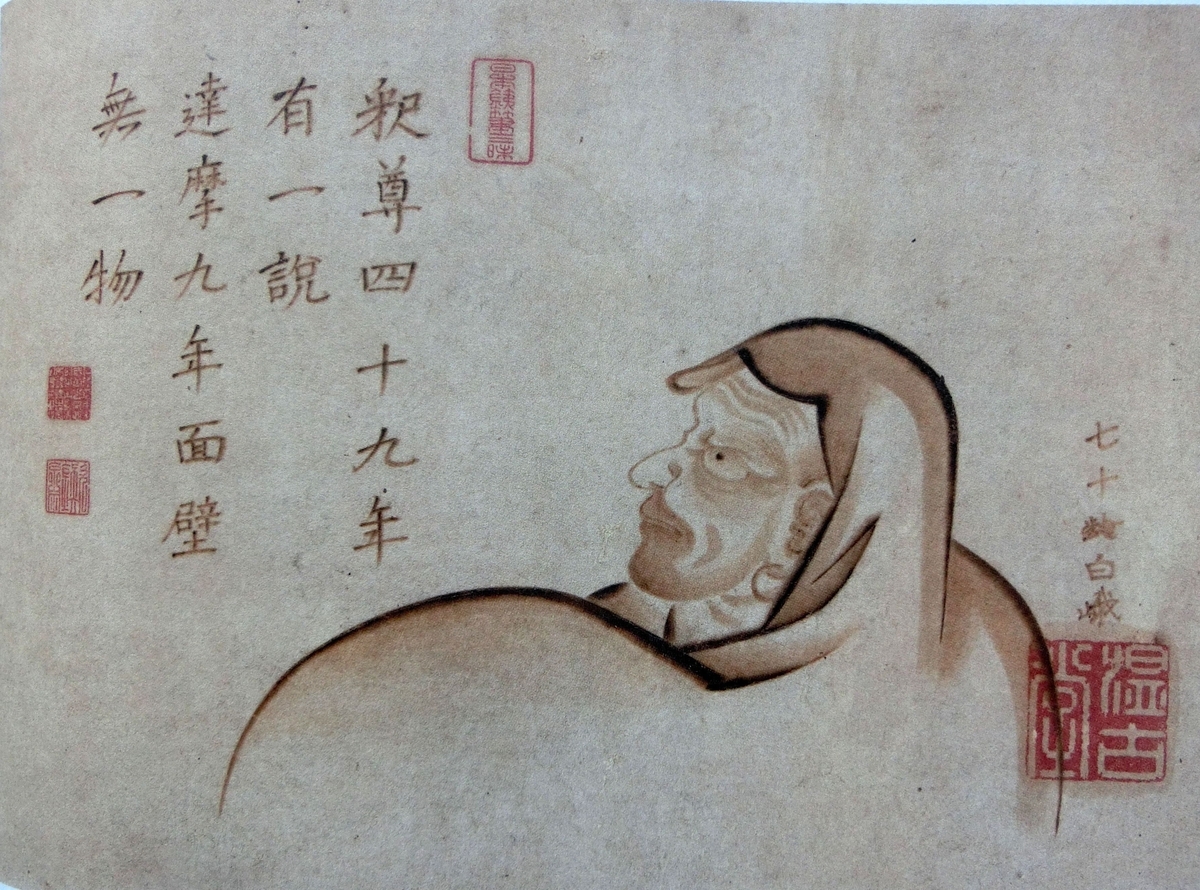 釈尊四十九年
有一説
達摩九年面壁
無一物
七十 白峨
温古